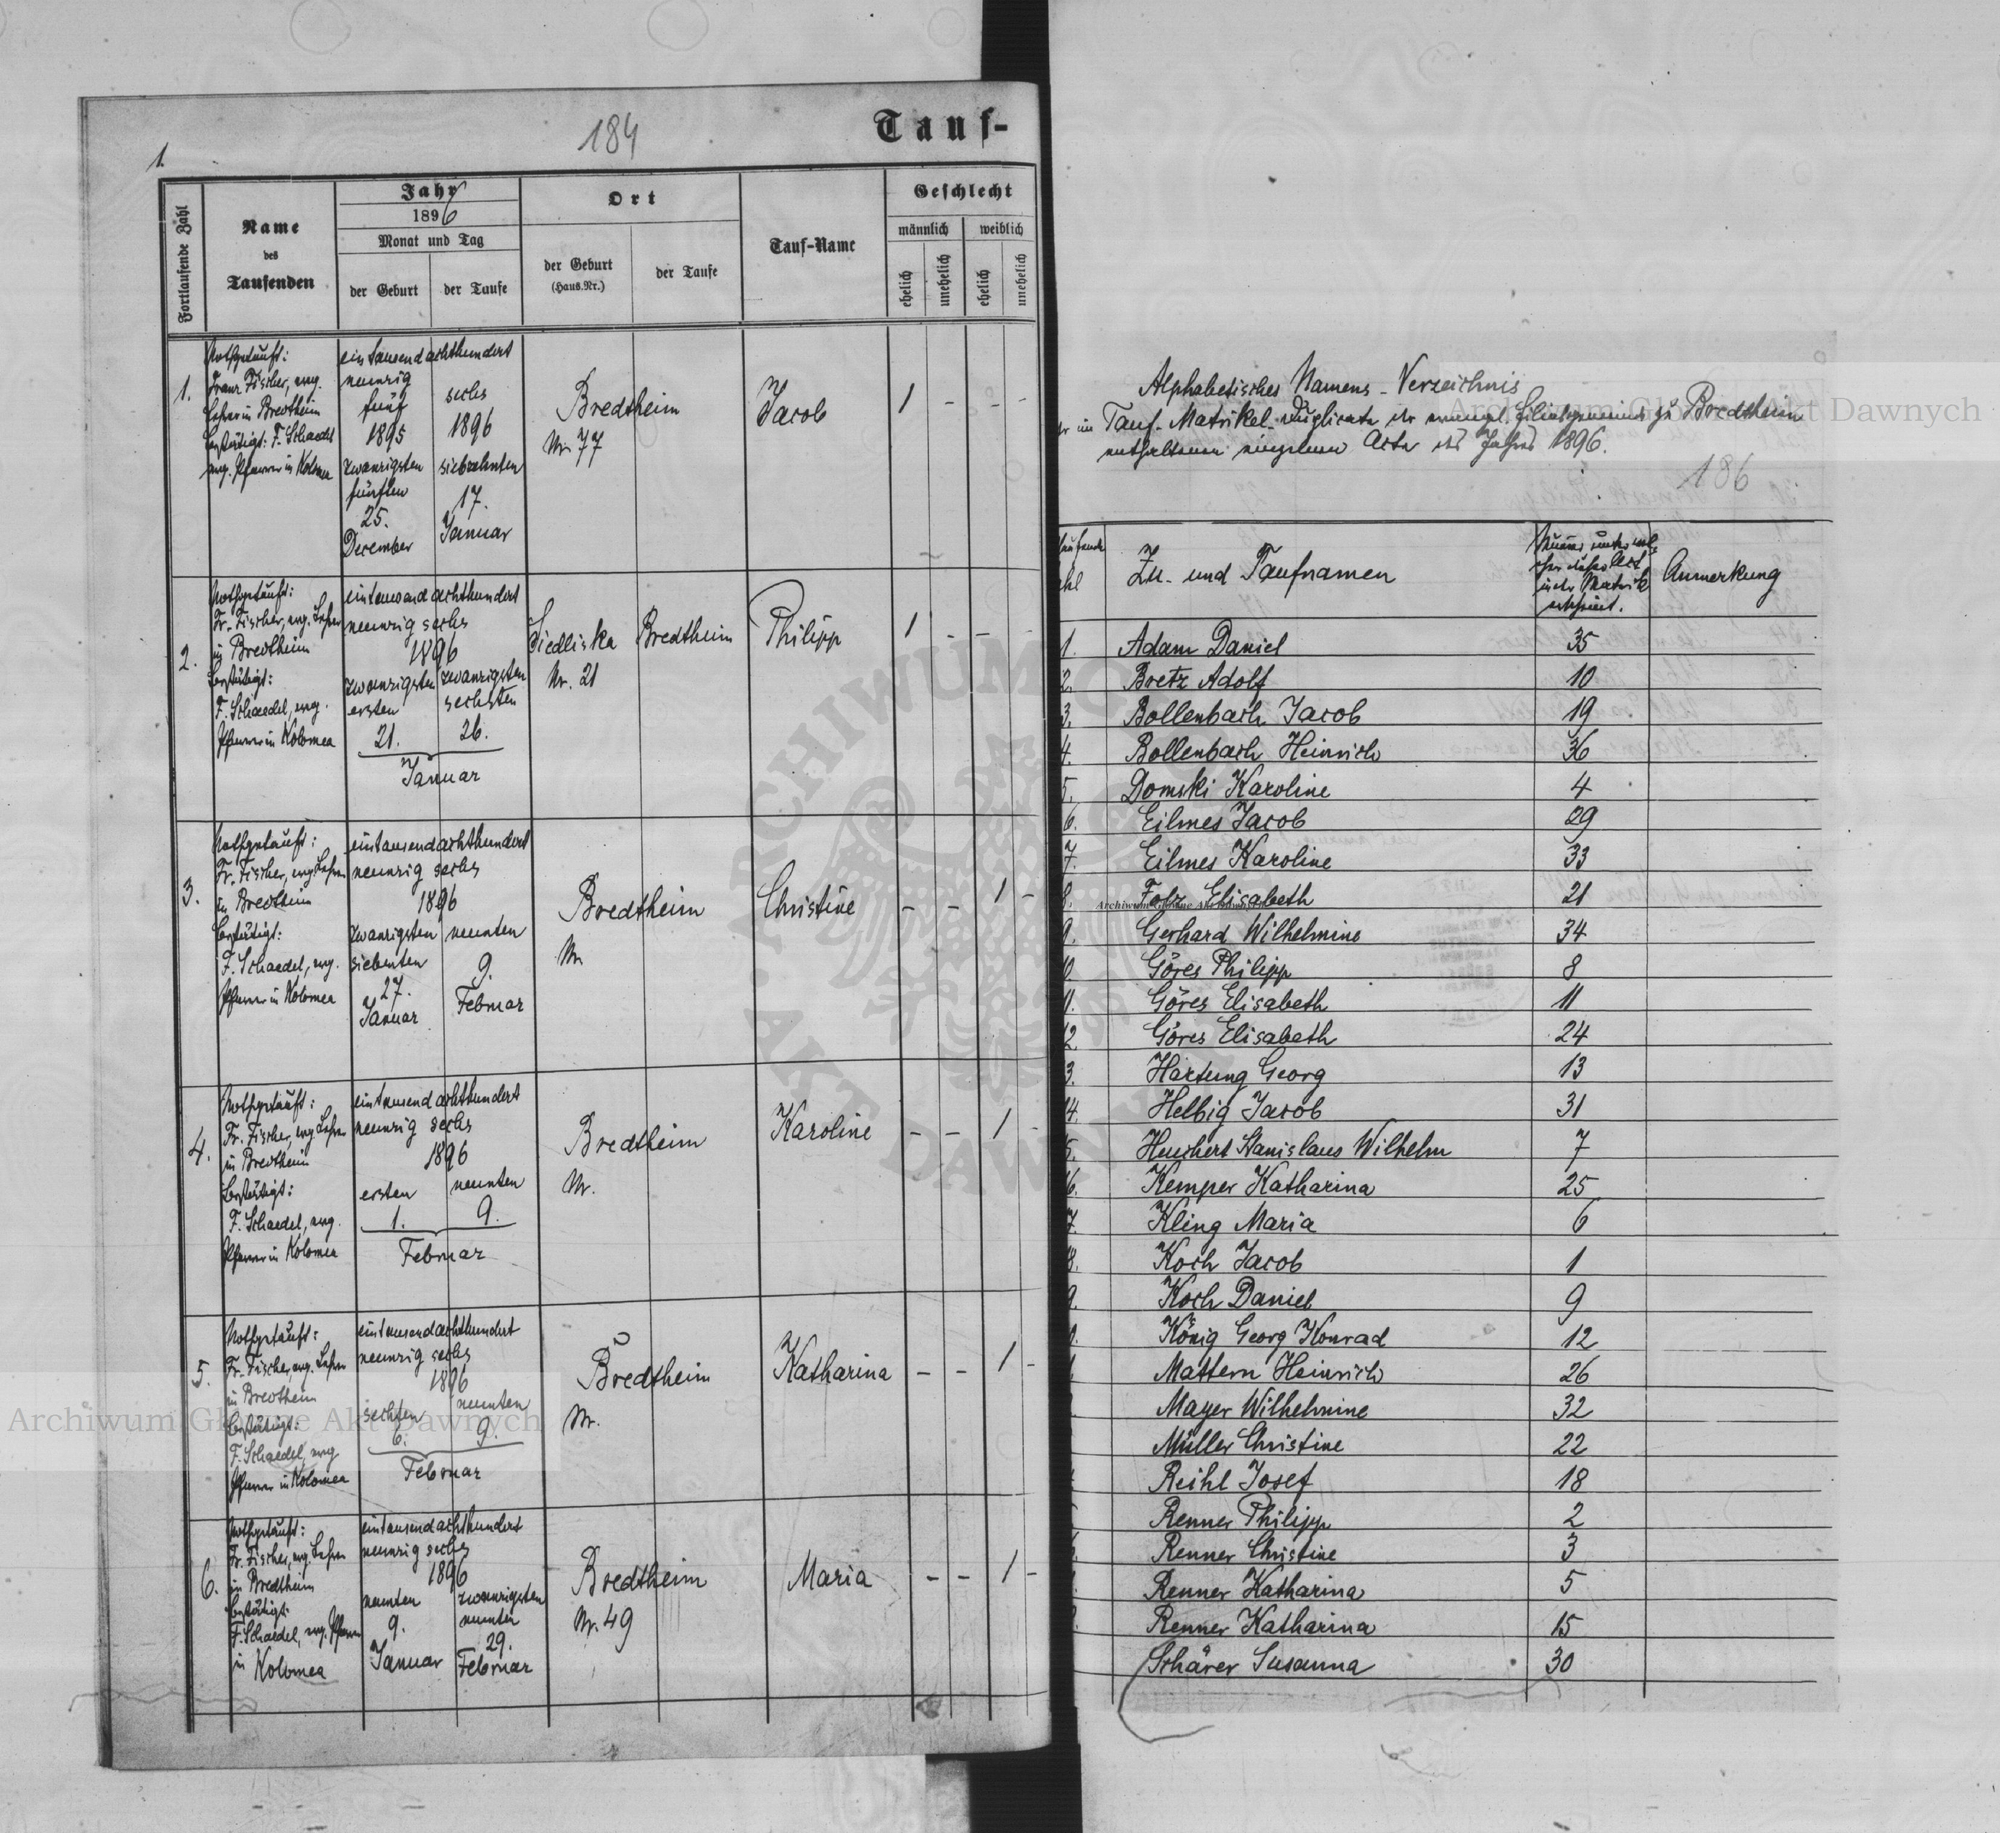 184
Tauf-
1.
Fortlaufende Zahl
Name
des
Taufenden
Jahr
1896
Monat und Tag
der Geburt
der Taufe
Ort
der Geburt
(Haus.Nr.)
der Taufe
Tauf-Name
Geschlecht
männlich
weiblich
ehelich
unehelich
ehelich
unehelich
1.
Nothgetauft:
Franz Fischer, evg.
Lehrer in Bredtheim
bestätigt: F. Schaedel
evg. Pfarrer in Kolomea
eintausendachthundert
neunzig
fünf
1895
zwanzigsten
fünften
25.
December
sechs
1896
siebzehnten
17.
Januar
Bredtheim
Nr. 77
Jacob
1 - - -
2.
Nothgetauft:
Fr. Fischer, evg. Lehrer
in Bredtheim
bestätigt:
F. Schaedel, evg.
Pfarrer in Kolomea
eintausendachthundert
neunzig sechs
1896
zwanzigsten
ersten
21.
zwanzigsten
sechsten
26.
Januar
Siedliska
Nr. 21
Bredtheim
Philipp
1 - - -
3.
Nothgetauft:
Fr. Fischer, evg. Lehrer
in Bredtheim
bestätigt:
F. Schaedel, evg.
Pfarrer in Kolomea
eintausendachthundert
neunzig sechs
1896
zwanzigsten
siebenten
27.
Januar
neunten
9.
Februar
Bredtheim
Nr.
Christine
- - 1 -
4.
Nothgetauft:
Fr. Fischer, evg. Lehrer
in Bredtheim
bestätigt:
F. Schaedel, evg.
Pfarrer in Kolomea
eintausendachthundert
neunzig sechs
1896
ersten
1.
neunten
9.
Februar
Bredtheim
Nr.
Karoline
- - 1 -
5.
Nothgetauft:
Fr. Fischer, evg. Lehrer
in Bredtheim
bestätigt:
F. Schaedel, evg
Pfarrer in Kolomea
eintausendachthundert
neunzig sechs
1896
sechsten
6.
neunten
9.
Februar
Bredtheim
Nr.
Katharina
- - 1 -
6.
Nothgetauft:
Fr. Fischer, evg. Lehrer
in Bredtheim
bestätigt:
F. Schaedel, evg. Pfarrer
in Kolomea
eintausendachthundert
neunzig sechs
1896
neunten
9.
Januar
zwanzigsten
neunten
29.
Februar
Bredtheim
Nr. 49
Maria
- - 1 -
Alphabetisches Namens-Verzeichnis
im Tauf-Matrikel-Duplicate der evangel. Filialgemeinde zu Bredtheim
enthaltenen einzelnen Acte des Jahres 1896.
186
Zu- und Taufnamen
Anmerkung
1. Adam Daniel 35
2. Bretz Adolf 10
3. Bollenbach Jacob 19
4. Bollenbach Heinrich 36
5. Domski Karoline 4
6. Eilmes Jacob 29
7. Eilmes Karoline 33
8. Folz Elisabeth 21
9. Gerhard Wilhelmine 34
0. Göres Philipp 8
1. Göres Elisabeth 11
2. Göres Elisabeth 24
3. Hartung Georg 13
14. Helbig Jacob 31
5. Heuchert Stanislaus Wilhelm 7
6. Kemper Katharina 25
7. Kling Maria 6
8. Koch Jacob 1
9. Koch Daniel 9
0. König Georg Konrad 12
Mattern Heinrich 26
Mayer Wilhelmine 32
Müller Christine 22
Reihl Josef 18
Renner Philipp 2
Renner Christine 3
Renner Katharina 5
Renner Katharina 15
Schärer Susanna 30
Archiwum Główne Akt Dawnych
Archiwum Główne Akt Dawnych
Archiwum Główne Akt Dawnych